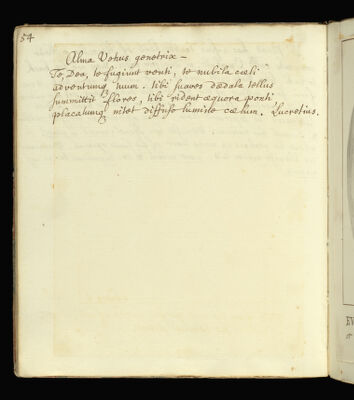 54
Alma Venus genetrix —
Te, Dea, te fugiunt venti, te nubila cœli
adventumq tuum. tibi suaves dædala tellus
summittit flores, tibi rident æquora ponti
placatumq nitet diffuso lumine cœlum. Lucretius.